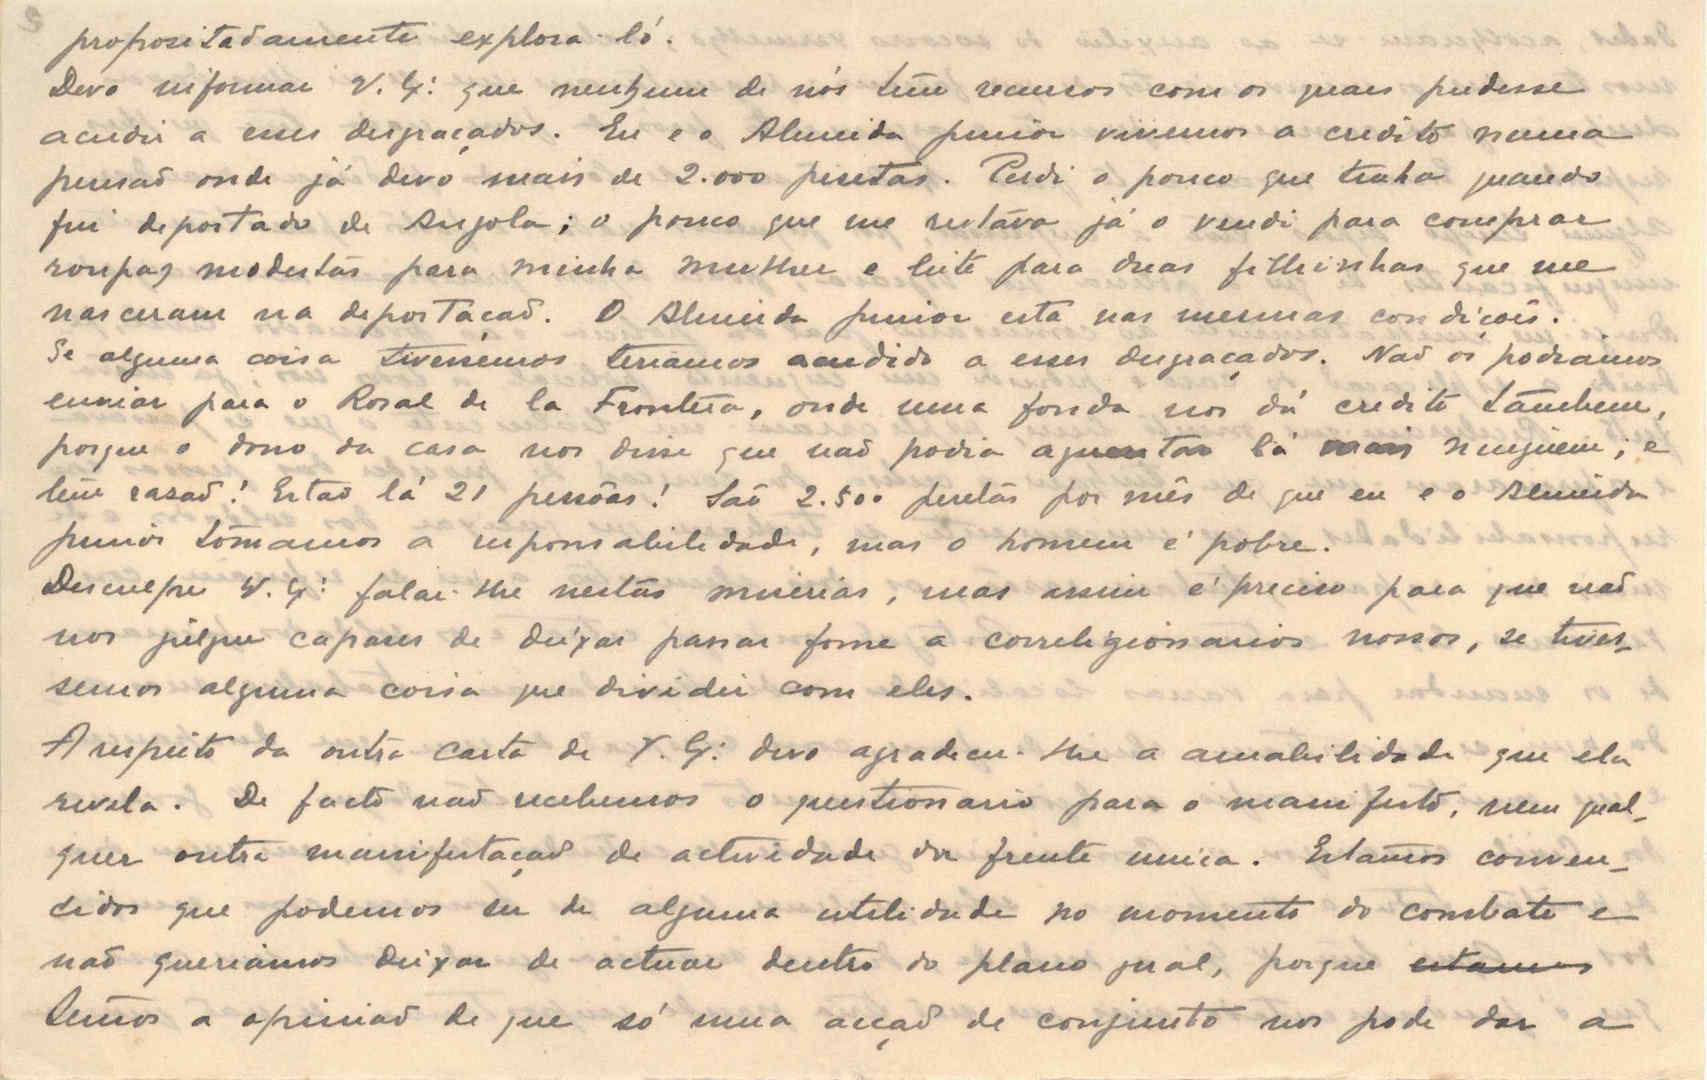 propositadamente explora-ló.
Devo informar V. Ex: que nenhum de nós tem recursos com os quaes pudesse
acudir a esses desgraçados. Eu e o Almeida junior vivemos a credito numa
pensaõ onde já devo mais de 2.000 pesetas. Perdi o pouco que tinha quando
fui deportado de Angola; o pouco que me restáva já o vendi para comprar
roupas modestas para minha mulher e leite para duas filhinhas que me
nasceram na deportaçaõ. O Almeida junior está nas mesmas condiçoẽs.
Se alguma coisa tivessemos teriamos acudido a esses desgraçados. Naõ os podiamos
enviar para o Rosal de la Frontera, onde uma fonda nos dá credito tambem,
porque o dono da casa nos disse que naõ podia aguentar lá mais ninguem; e
tem rasaõ! Estaõ lá 21 pessôas! Saõ 2.500 pesetas por mês de que eu e o Almeida
junior tomamos a responsabilidade, mas o homem é pobre.
Desculpe V. Ex: falar-lhe nestas miserias, mas assim é preciso para que naõ
nos julgue capazes de deixar passar fome a correligionarios nossos, se tives-
semos alguma coisa que dividir com eles.
A respeito da outra carta de V. Ex: devo agradecer-lhe a amabilidade que ela
revela. De facto naõ recebemos o questionario para o manifesto, nem qual-
quer outra manifestaçaõ de actividade da frente unica. Estamos conven-
cidos que podemos ser de alguma utilidade no momento do combate e
naõ queriamos deixar de actuar dentro do plano geral, porque estamos
temos a opiniaõ de que só uma acçaõ de conjunto nos pode dar a